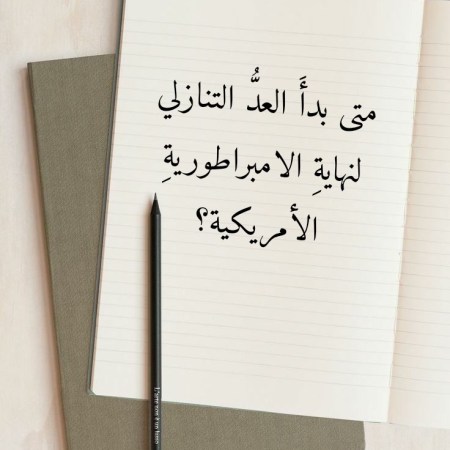 متى بدأَ العدُّ التنازلي
لنهايةِ الامبراطوريةِ
الأمريكية؟